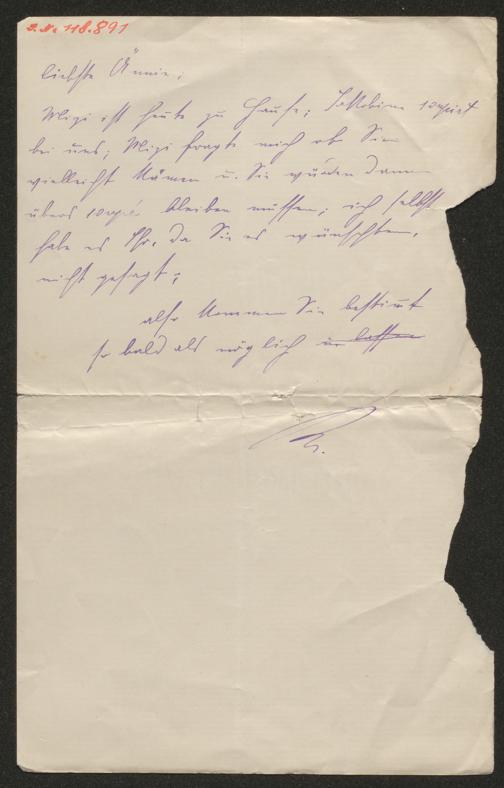 J. N. 118.891
liebste Annie;
Mizi ist heute zu Hause; Jakobine soupirt
bei uns; Mizi fragte mich ob Sie
vielleicht kämen u. Sie würden dann
übers soupé bleiben müssen; ich selbst
habe es Ihr, da Sie es wünschten,
nicht gesagt;
also kommen Sie bestimt
so bald als möglich